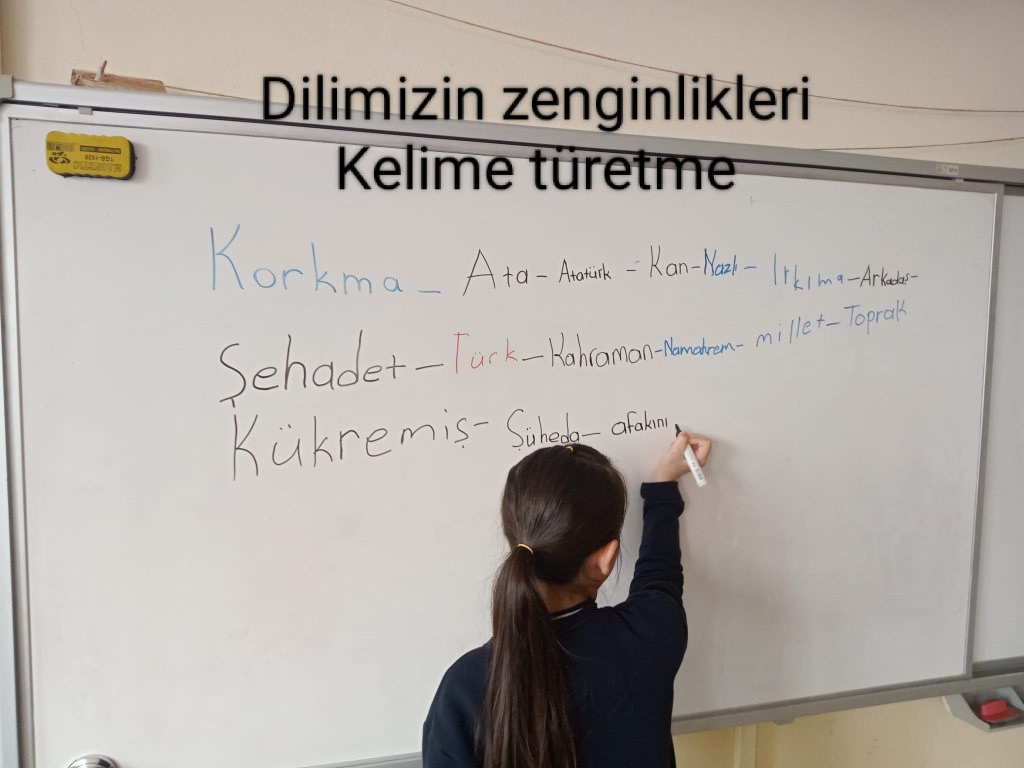 Dilimizin zenginlikleri
Kelime türetme
Korkma - Ata - Atatürk - Kan - Nazlı - Irkıma - Arkadaş -
Şehadet - Türk - Kahraman - Namahrem - millet - Toprak
Kükremiş - Şüheda - afakını